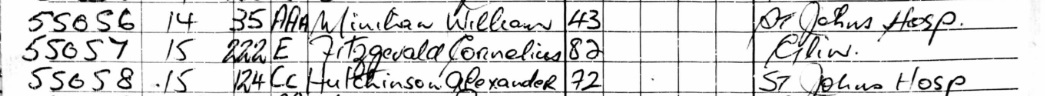 55056 14 35 AAA Minihan William 43 St Johns Hosp.
55057 15 222 E Fitzgerald Cornelius 82
55058 15 124 CC Hutchinson Alexander 72 St Johns Hosp